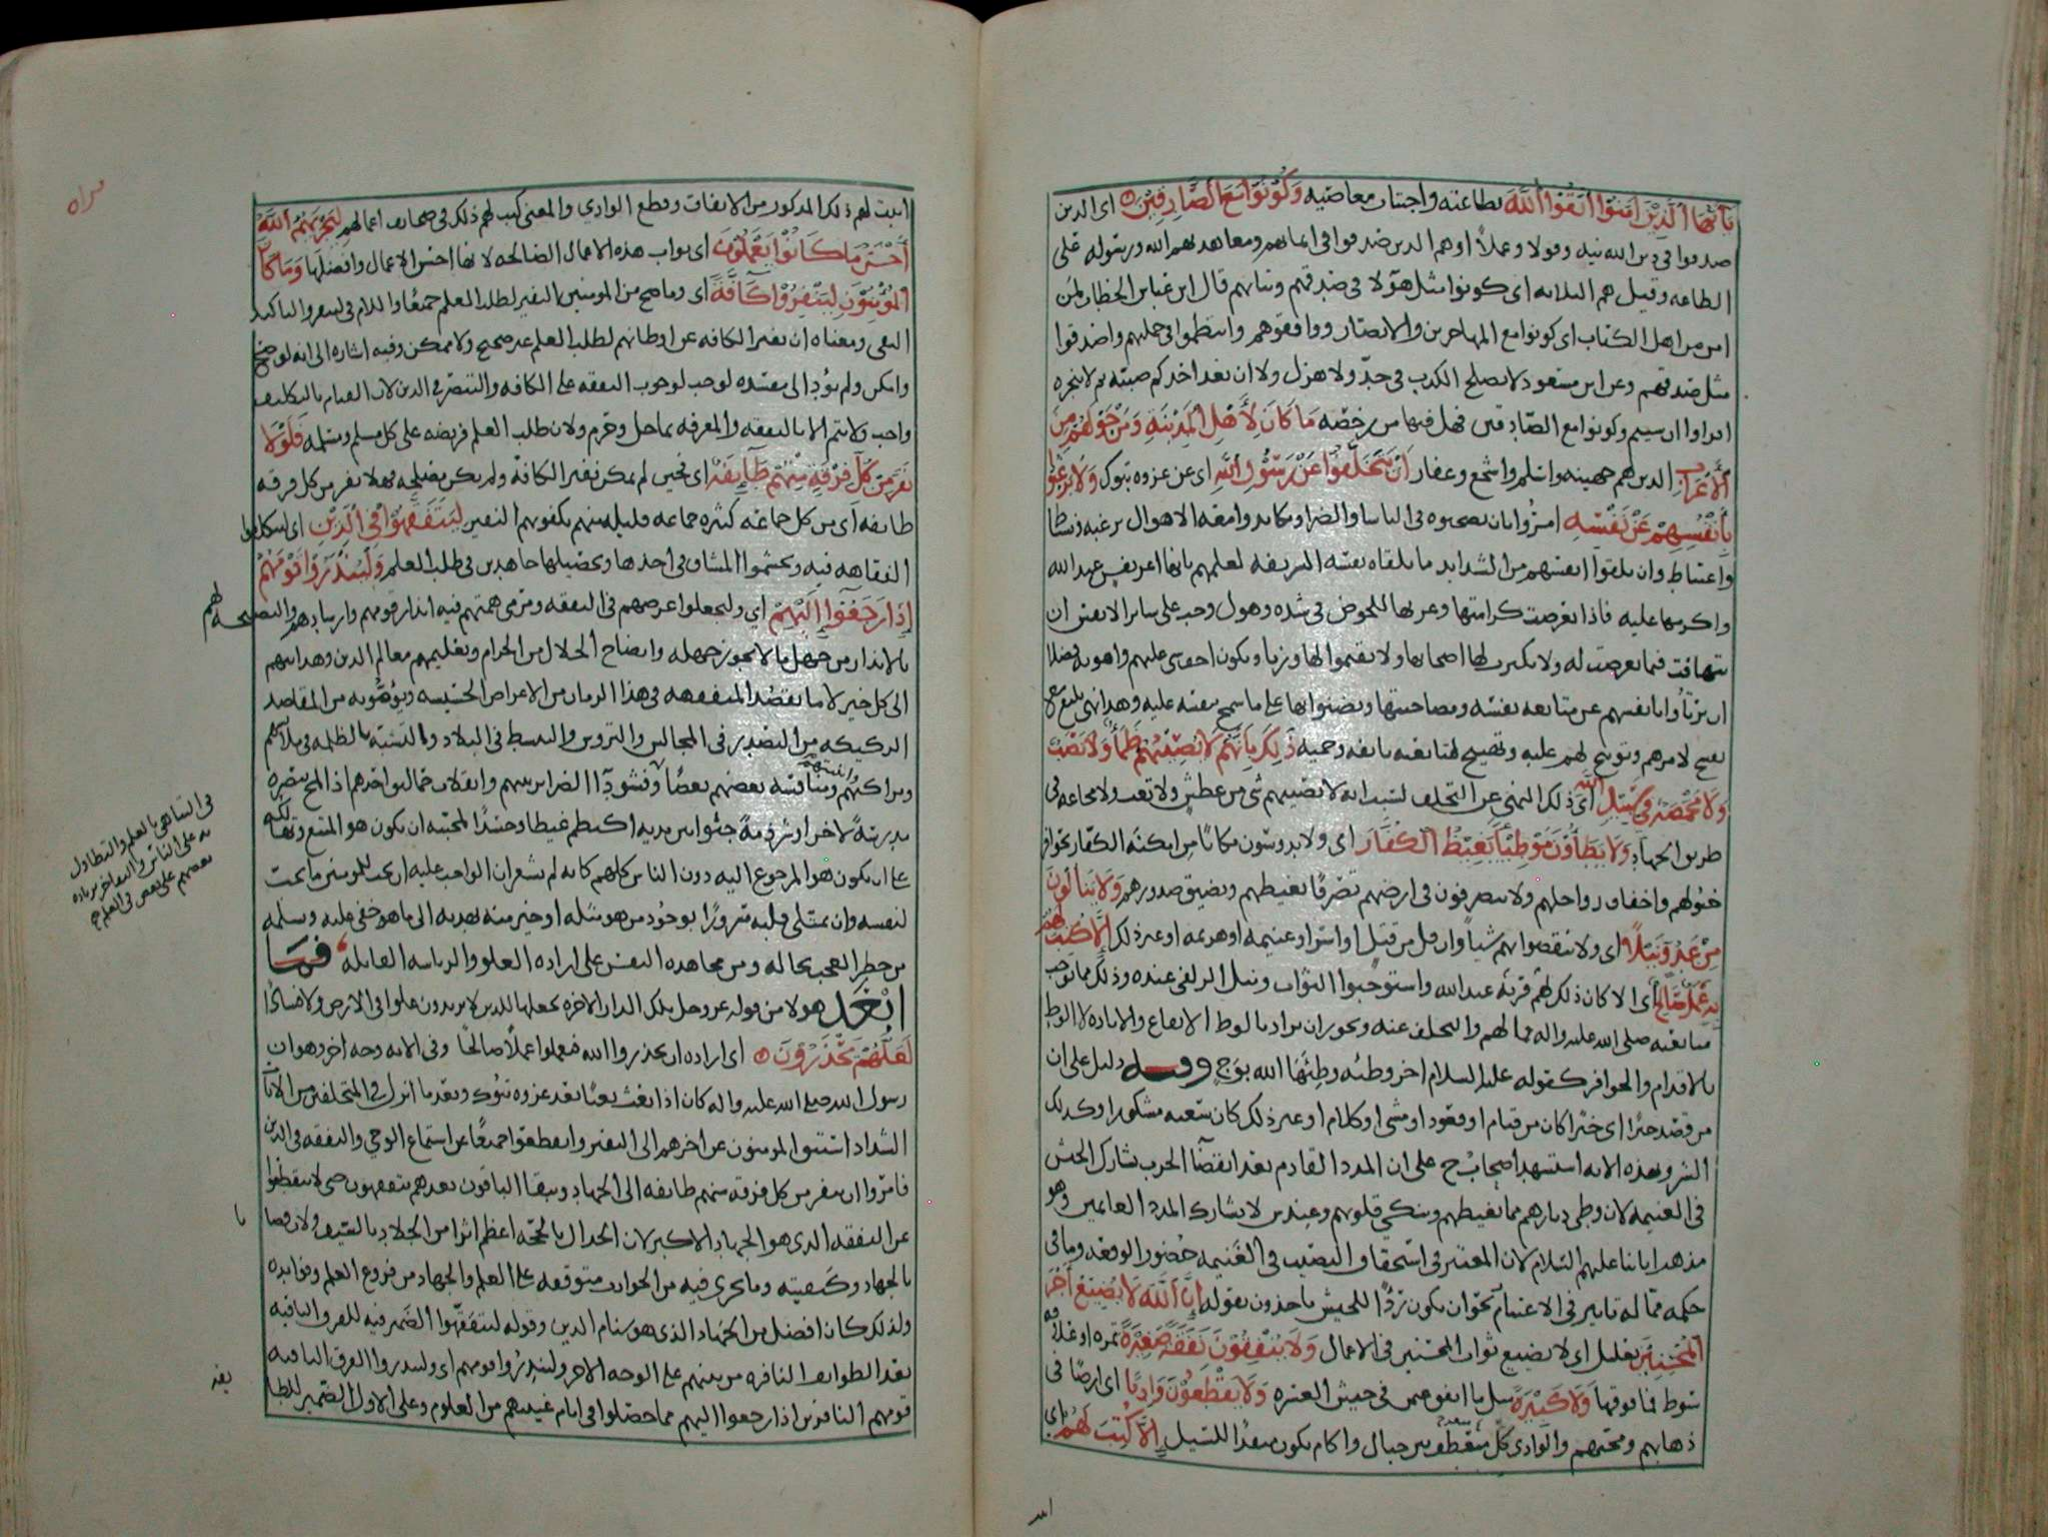 يا أيها الذين امنوا اتقوا الله بطاعته واجتناب معاصيه وكونوا مع الصادقين اى الذين
صدقوا في دين الله نيه وقولا وعملا او هم الذين صدقوا في ايمانهم ومعاهدتهم الله ورسوله على
الطاعه وقيل هم الثلاثه اى كونوا مثل هؤلا في صدقهم وثباتهم قال ابن عباس الخطاب لمن
امن من اهل الكتاب اى كونوا مع المهاجرين والانصار ووافقوهم وانتظموا في جملتهم واصدقوا
مثل صدقهم وعن ابن مسعود لا يصلح الكذب في جد ولا هزل ولا ان يعد احدكم صبيه ثم لا ينجزه
اقراوا ان شيتم وكونوا مع الصادقين فهل فيها من رخصه ما كان لأهل المدينة ومن حولهم من
الأعراب الذين هم جهينه واسلم واشجع وغفار ان يتخلفوا عن رسول الله اى عن غزوه تبوك ولا يرغبوا
بأنفسهم عن نفسه امروا بان يصحبوه في الباسا والضرا ويكابدوا معه الاهوال برغبه ونشاط
واغتباط وان يلقوا انفسهم من الشدايد ما يلقاه نفسه الشريفه لعلمهم بانها اعز نفس عند الله
واكرمها عليه فاذا تعرضت كرامتها وعزتها للخوض في شده وهول وجب على ساير الانفس ان
تتهافت فيما تعرضت له ولا يكترث لها اصحابها ولا يقيموا لها وزنا ويكون اخف شى عليهم واهونه فضلا
ان يربأوا بانفسهم عن متابعه نفسه ومصاحبتها ويضنوا بها على ما سمح بنفسه عليه وهذا نهي بليغ مع
تقبيح لامرهم وتوبيخ لهم عليه وتهييج لمتابعته بانفه وحميه ذلك بأنهم لا يصيبهم ظمأ ولا نصب
ولا مخمصة في سبيل الله اى ذلك النهى عن التخلف لسبب انه لا يصيبهم شى من عطش ولا تعب ولا مجاعه في
طريق الجهاد ولا يطأون موطئا يغيظ الكفار اى ولا يدوسون مكانا من امكنه الكفار بحوافر
خيولهم واخفاف رواحلهم ولا يتصرفون في ارضهم تصرفا يغيظهم ويضيق صدورهم ولا ينالون
من عدو نيلا اى ولا ينقصوا بهم شيا وان قل من قتل او اسر او غنيمه او هزيمه او غير ذلك إلا كتب لهم
به عمل صالح أى الا كان ذلك لهم قربه عند الله واستوجبوا الثواب ونيل الزلفى عنده وذلك مما يوجب
متابعته صلى الله عليه واله مما لهم والتخلف عنه ويجوز ان يراد بالوطئ الايقاع والاباده لا الوطئ
بالاقدام والحوافر كقوله عليه السلام اخر وطئه وطئها الله بوج وفيه دليل على ان
من قصد خيرا اى خير كان من قيام او قعود او مشى او كلام او غير ذلك كان سعيه مشكورا وكذلك
الشر وبهذه الايه استشهد اصحاب ح على ان المدد القادم بعد انقضآ الحرب يشارك الجيش
في الغنيمه لان وطي ديارهم مما يغيظهم وينكي قلوبهم وعند ش لا يشارك المدد الغانمين وهو
مذهب ابائنا عليهم السلام لان المعتبر في استحقاق النصيب في الغنيمه حضور الوقعه وما في
حكمه مما له تاثير في الاغتنام نحو ان يكون ردًا للجيش ياخذون بقوله إن الله لا يضيع أجر
المحسنين تعليل اى لا يضيع ثواب المحسنين في الاعمال ولا ينفقون نفقة صغيرة تمره او علاقه
سوط فما فوقها ولا كبيرة مثل ما انفق عثمن في جيش العسره ولا يقطعون واديا اى ارضا في
ذهابهم ومجيئهم والوادي كل منعطف بين جبال واكام يكون منفذا للسيل إلا كتب لهم اى
اثبت لهم ذلك المذكور من الانفاق وقطع الوادي والمعنى كتب لهم ذلك في صحايف اعمالهم ليجزيهم الله
أحسن ما كانوا يعملون اى ثواب هذه الاعمال الصالحه لانها احسن الاعمال وافضلها وما كان
المؤمنون لينفروا كآفة اى وما صح من المومنين النفير لطلب العلم جميعًا واللام في لينفروا لتاكيد
النفي ومعناه ان نفير الكافه عن اوطانهم لطلب العلم غير صحيح ولا ممكن وفيه اشاره الى انه لو صح
وامكن ولم يؤد الى مفسده لوجب لوجوب التفقه على الكافه والتبصر في الدين لان القيام بالتكليف
واجب ولا يتم الا بالتفقه والمعرفه بما حل وحرم ولان طلب العلم فريضه على كل مسلم ومسلمه فلولا
نفر من كل فرقة منهم طآيفة اى فحين لم يمكن نفير الكافه ولم يكن مصلحه فهلا نفر من كل فرقه
طايفه أى من كل جماعه كثيره جماعه قليله منهم يكفونهم النفير ليتفقهوا في الدين اى ليتكلفوا
الفقاهه فيه ويتجشموا المشاق في اخذها وتحصيلها جاهدين في طلب العلم ولينذروا قومهم
إذا رجعوا إليهم أي وليجعلوا غرضهم في التفقه ومرمى همتهم فيه انذار قومهم وارشادهم والنصيحه لهم
بالانذار من جهل ما لا يجوز جهله وايضاح الحلال من الحرام وتعليمهم معالم الدين وهدايتهم
الى كل خير لا ما يقصد المتفقهه في هذا الزمان من الاعراض الخسيسه ويؤمونه من المقاصد
الركيكه من التصدر في المجالس والتروس والتبسط في البلاد والتشبه بالظلمه في ملابسهم
ومراكبهم ومنافسه بعضهم بعضًا وفشو دآ الضراير بينهم وانقلاب حماليق احدهم اذا لمح ببصره
مدرسهً لاخر او شرذمهً جثوا بين يديه اكتظم غيظا وحسدًا لمحبته ان يكون هو المتبع وتهالكه
على ان يكون هو المرجوع اليه دون الناس كلهم كانه لم يشعر ان الواجب عليه ان يحب للمومنين ما يحب
لنفسه وان يمتلى قلبه سرورًا بوجود من هو مثله او خير منه يهديه الى ما هو خفي عليه ويسلمه
من خطر العجب بحاله ومن مجاهده النفس على اراده العلو والرياسه القاتله فما
أبعد هولا من قوله عز وجل تلك الدار الاخره نجعلها للذين لا يريدون علوا في الارض ولا فسادًا
لعلهم يحذرون اى اراده ان يحذروا الله فيعملوا عملًا صالحًا وفي الايه وجه اخر وهو ان
رسول الله صلى الله عليه واله كان اذا بعث بعثًا بعد غزوه تبوك وبعد ما انزل في المتخلفين من الايات
الشداد استبق المومنون عن اخرهم الى النفير وانقطعوا جميعًا عن استماع الوحي والتفقه في الدين
فامروا ان ينفر من كل فرقه منهم طايفه الى الجهاد ويبقا الباقون بعدهم يتفقهون حتى لا ينقطعوا
عن التفقه الذى هو الجهاد الاكبر لان الجدال بالحجه اعظم اثرا من الجلاد بالسيف ولان
بالجهاد وكيفيته وما يجرى فيه من الحوادث متوقفه على العلم والجهاد من فروع العلم وفوايده
ولذلك كان افضل من الجهاد الذى هو سنام الدين وقوله ليتفقهوا الضمير فيه للفرق الباقيه
بعد الطوايف النافره من بينهم على الوجه الاخر ولينذروا قومهم اى ولينذروا الفرق الباقيه
قومهم النافرين اذا رجعوا اليهم مما حصلوا في ايام غيبتهم من العلوم وعلى الاول الضمير للطا
في التباهي بالعلم والتطاول
به على الناس والتفاخر بزياده
بعضهم على بعض في العلم